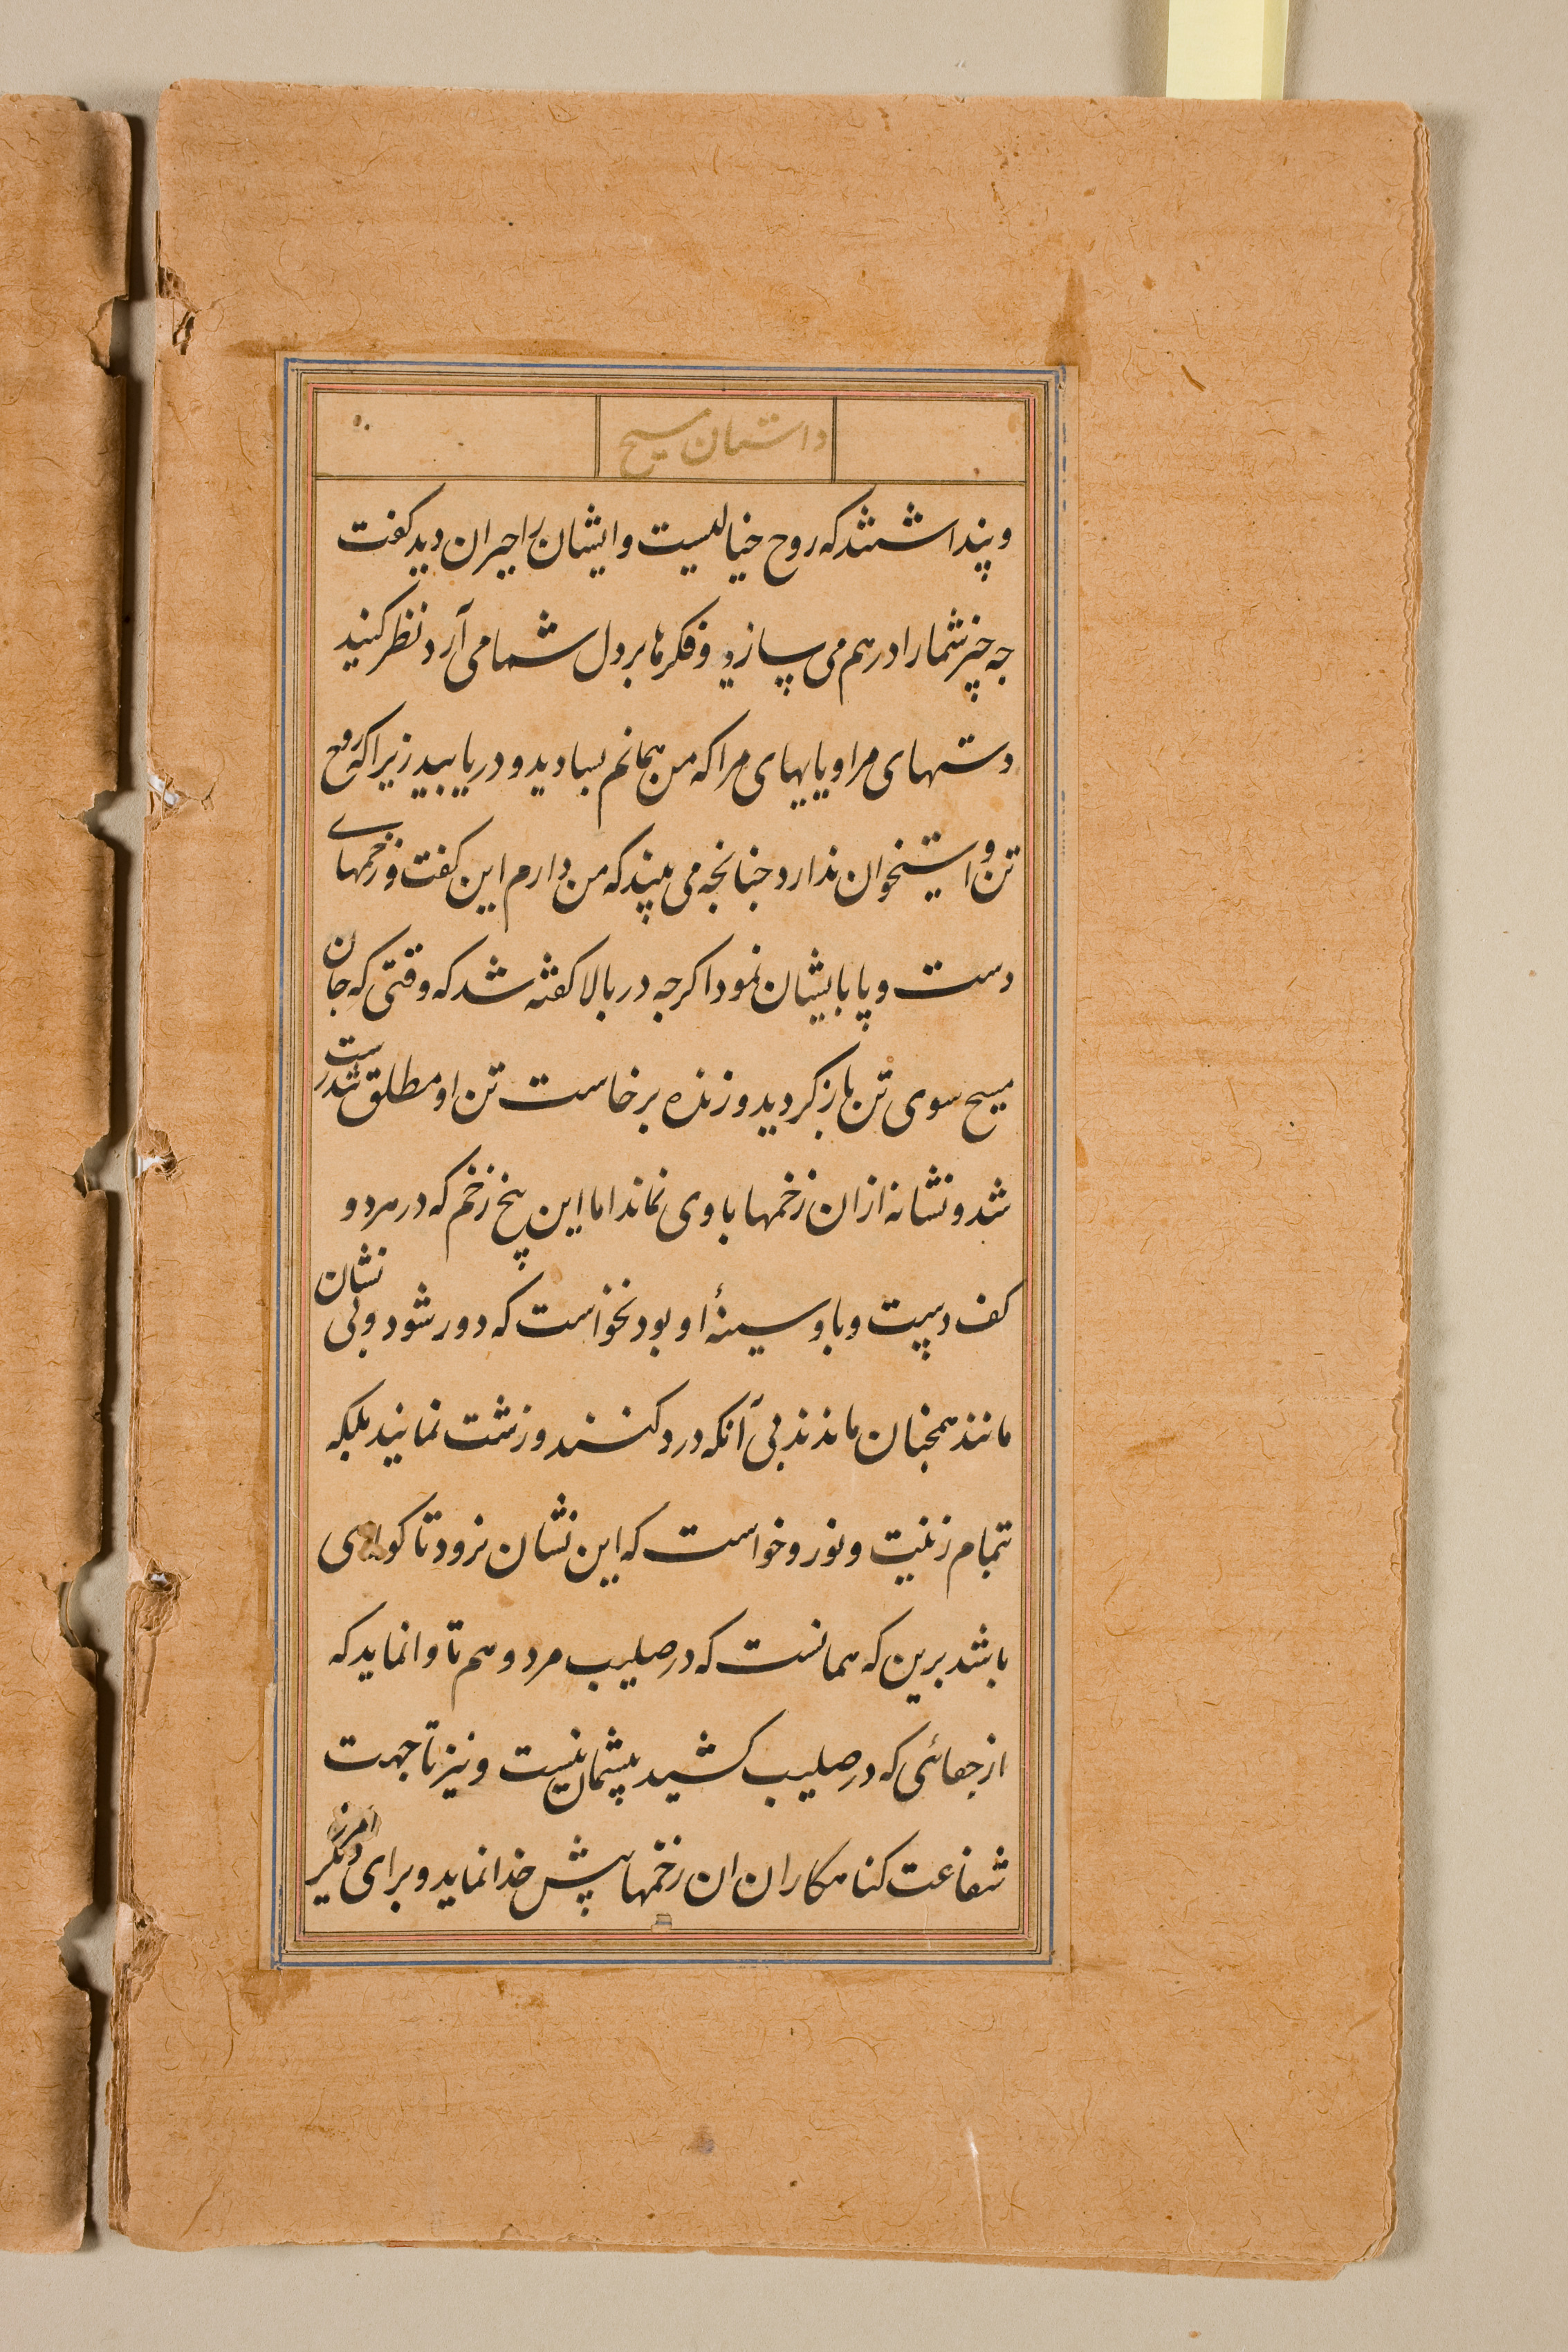 داستان مسیح
و پنداشتند که روح خیالیست و ایشان را حیران دید گفت
چه چیز شما را در هم می سازد و فکرها بر دل شما می آرد نظر کنید
دستهای مرا و پایهای مرا که من همانم بساوید و دریابید زیرا که روح
تن و استخوان ندارد جنانجه می بینید که من دارم این گفت و زخمهای
دست و پا بایشان نمود اکرجه در بالا کفته شد که وقتی که جان
مسیح سوی تن باز کردید و زنده برخاست تن او مطلق تندرست
شد و نشانه ازان زخمها با وی نماند اما این پنج زخم که در هر دو
کف دست و پا و سینهٔ او بود نخواست که دور شود ولی نشان
مانند همجنان ماندند بی آنکه درد کنند و زشت نمایند بلکه
تمام زینت و نور و خواست که این نشان نرود تا کواهی
باشد برین که همانست که در صلیب مرد و هم تا وانماید که
از جفائی که در صلیب کشید پشیمان نیست و نیز تا جهت
شفاعت کناهکاران ان زخمها پیش خدا نماید و برای دیکر